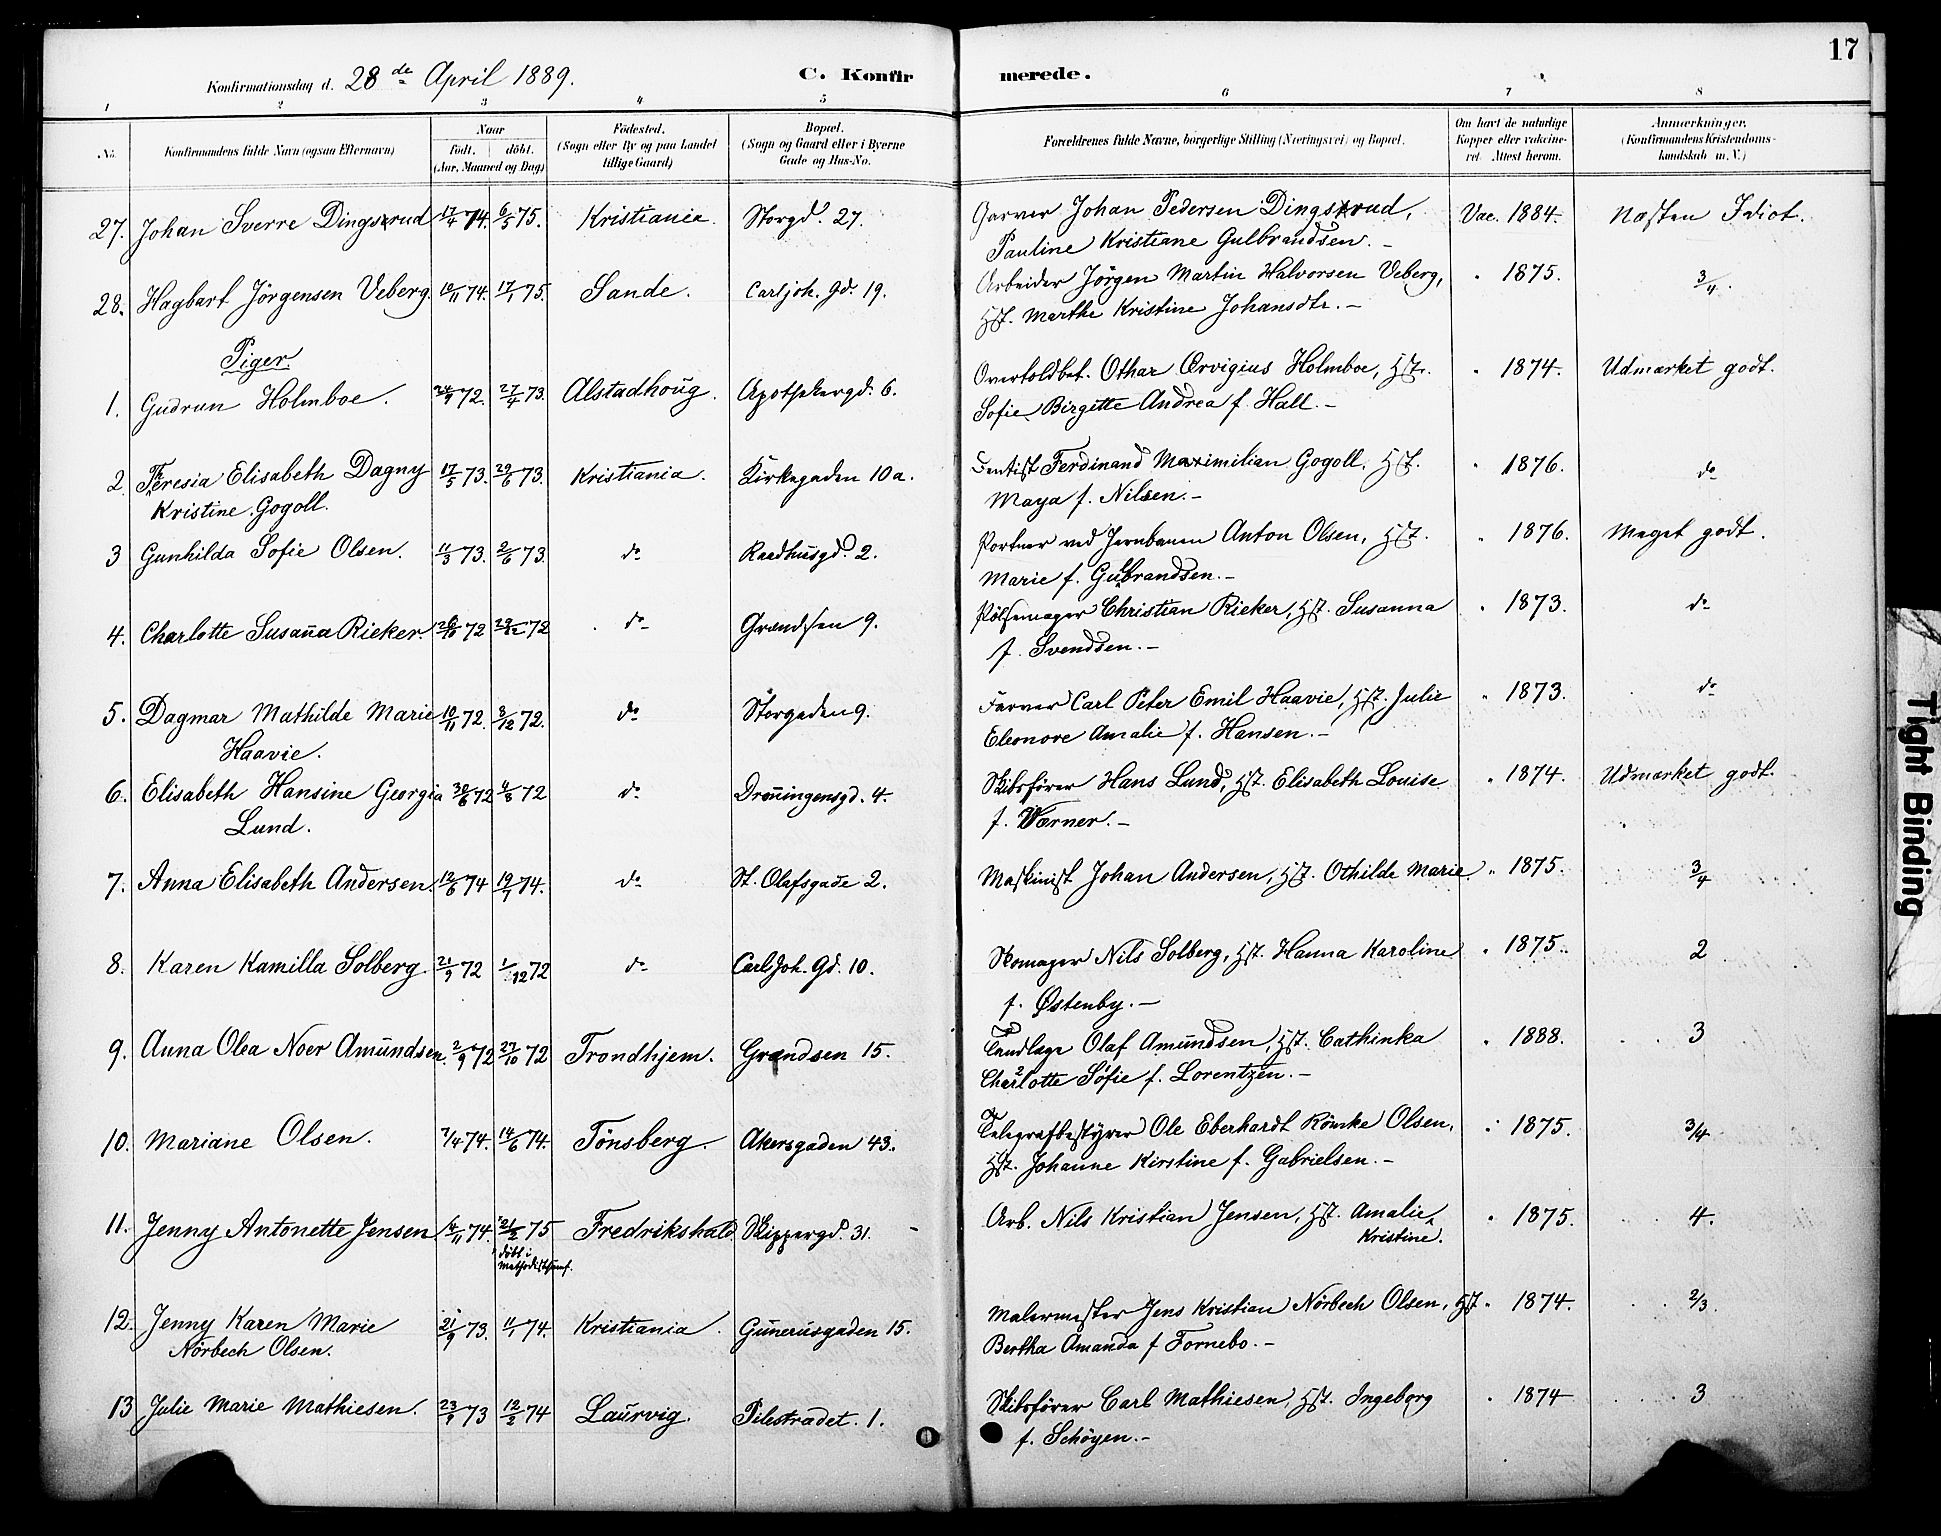 17
Konfirmationsdag d. 28de April 1889.
C. Konfirmerede.
1 2 3 4 5 6 7 8
No.
Konfirmandens fulde Navn (ogsaa Efternavn)
Naar
födt. döbt.
(Aar, Maaned og Dag)
Födested.
(Sogn eller By og paa Landet
tillige Gaard)
Bopæl.
(Sogn og Gaard eller i Byerne
Gade og Hus-No.
Forældrenes fulde Navne, borgerlige Stilling (Næringsvei) og Bopæl.
Om havt de naturlige
Kopper eller vakcine-
ret. Attest herom.
Anmærkninger.
(Konfirmandens Kristendoms-
kundskab m. V.)
27. Johan Sverre Dingsrud 17/4 74. 6/5 75. Kristiania. Storgd. 27. Garver Johan Pedersen Dingsrud, Vac. 1884. Næsten Idiot.
Pauline Kristiane Gulbrandsen. –
28. Hagbart Jörgensen Veberg. 10/11 74. 17/1 75. Sande. Carl joh. Gd. 19. Arbeider Jörgen Martin Halvorsen Veberg, " 1875. 3/4.
Hst. Marthe Kristine Johansdtr. –
Piger
1. Gudrun Holmboe. 24/9 72. 27/4 73. Alstadhoug. Apothekergd. 6. Overtoldbet. Othar Ervigius Holmboe, Hst. " 1874. Udmærket godt.
Sofie Birgitte Andrea f. Hall. –
2. Theresia Elisabeth Dagny 17/5 73. 29/6 73. Kristiania. Kirkegaden 10a. Dentist Ferdinand Maximilian Gogoll. Hst. " 1876. do
Kristine Gogoll. Maya f. Nilsen. –
3 Gunhilda Sofie Olsen. 11/3 73. 2/6 73. do Raadhusgd. 2. Portner ved Jernbanen Anton Olsen, Hst. " 1876. Meget godt.
Marie f. Gulbrandsen. –
4. Charlotte Susanna Rieker 26/10 72 29/12 72 do Grændsen 9. Pölsemager Christian Rieker, Hst. Susanna " 1873. do
f. Svendsen. –
5. Dagmar Mathilde Marie 10/11 72. 8/12 72. do Storgaden 9. Farver Carl Peter Emil Haavie, Hst. Julie " 1873. do
Haavie. Eleonore Amalie f. Hansen. –
6. Elisabeth Hansine Georgia 30/6 72 4/8 72 do Dronningensgd. 4. Skibsförer Hans Lund, Hst. Elisabeth Louise " 1874. Udmærket godt.
Lund. f. Wærner. –
7. Anna Elisabeth Andersen. 12/6 74 19/7 74. do St. Olafsgade 2. Maskinist Johan Andersen, Hst. Othilde Marie. " 1875. 3/4
8. Karen Kamilla Solberg. 21/9 72 1/12 72 do Carl Joh. Gd. 10. Skomager Nils Solberg, Hst. Hanna Karoline " 1875. 2
f. Østenby. –
9. Anna Olea Noer Amundsen. 2/9 72 27/10 72 Trondhjem. Grændsen 15. Tandlæge Olaf Amundsen, Hst. Cathinka " 1888. 3
Charlotte Sofie f. Lorentzen. –
10. Mariane Olsen. 7/4 74. 14/6 74. Tönsberg. Akersgaden 43. Telegrafbestyrer Ole Eberhardt Römke Olsen, " 1875. 3/4
Hst. Johanne Kirstine f. Gabrielsen. –
11. Jenny Antonette Jensen 4/11 74. 21/2 75 Fredrikshald. Skippergd. 31. Arb. Nils Kristian Jensen, Hst. Amalie " 1875. 4.
döbt i
Methodistsamf. Kristine.
12. Jenny Karen Marie 21/9 73. 11/1 74. Kristiania. Gunerusgaden 15. Malermester Jens Kristian Nörbech Olsen, Hst. " 1874. 2/3.
Nörbech Olsen. Bertha Amanda f Fornebo. –
13 Julie Marie Mathiesen. 23/9 73 12/2 74 Laurvig. Pilestrædet. 1. Skibsförer Carl Mathiesen, Hst. Ingeborg " 1874 3
f. Schöyen. –
Tight Binding